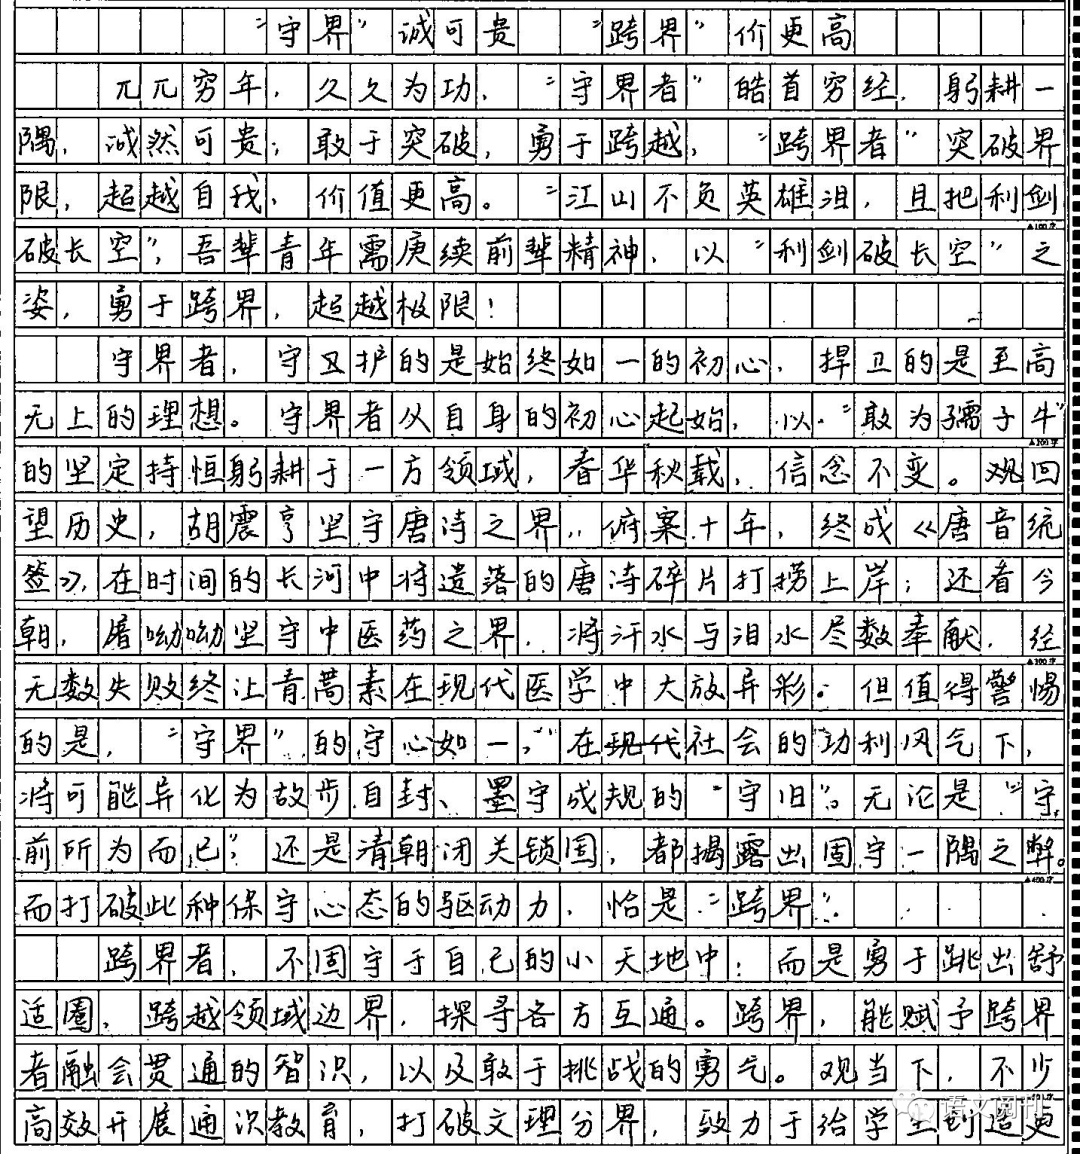 “守界”诚可贵 “跨界”价更高
兀兀穷年，久久为功，“守界者”皓首穷经，躬耕一
隅，诚然可贵；敢于突破，勇于跨越，“跨界者”突破界
限，超越自我，价值更高。“江山不负英雄泪，且把利剑
▲100字
破长空”，吾辈青年需赓续前辈精神，以“利剑破长空”之
姿，勇于跨界，超越极限！
守界者，守卫护的是始终如一的初心，捍卫的是至高
无上的理想。守界者从自身的初心起始，以“敢为孺子牛”
▲200字
的坚定持恒躬耕于一方领域，春华秋载，信念不变。观回
望历史，胡震亨坚守唐诗之界，俯案十年，终成《唐音统
签》，在时间的长河中将遗落的唐诗碎片打捞上岸；还看今
朝，屠呦呦坚守中医药之界，将汗水与泪水尽数奉献，经
▲300字
无数失败终让青蒿素在现代医学中大放异彩。但值得警惕
的是，“守界”的守心如一，在现代社会的功利风气下，
将可能异化为故步自封、墨守成规的“守旧”。无论是“守
前所为而已”，还是清朝闭关锁国，都揭露出固守一隅之弊。
▲400字
而打破此种保守心态的驱动力，恰是“跨界”。
跨界者，不固守于自己的小天地中，而是勇于跳出舒
适圈，跨越领域边界，探寻各方互通。跨界，能赋予跨界
者融会贯通的智识，以及敢于挑战的勇气。观当下，不少
高效开展通识教育，打破文理分界，致力于给学生创造更
语文阅刊